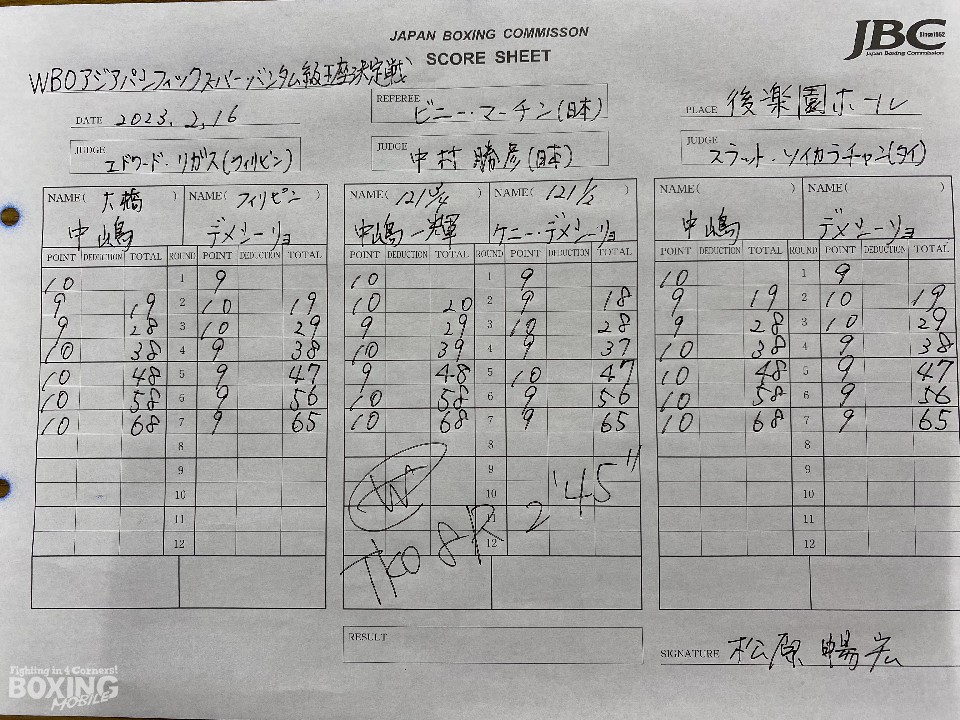 JAPAN BOXING COMMISSON
SCORE SHEET
JBC
Since1952
Japan Boxing Commission
WBOアジアパシフィックスーパー・バンタム級王座決定戦
DATE 2023.2.16
REFEREE ビニー・マーチン(日本)
PLACE 後楽園ホール
JUDGE エドワード・リガス(フィリピン)
JUDGE 中村勝彦(日本)
JUDGE スラット・ソイカラチャン(タイ)
NAME(大橋) NAME(フィリピン) NAME(121 3/4) NAME(121 1/2) NAME( ) NAME( )
中嶋 デメシーリョ 中嶋一輝 ケニー・デメシーリョ 中嶋 デメシーリョ
POINT DEDUCTION TOTAL ROUND POINT DEDUCTION TOTAL POINT DEDUCTION TOTAL ROUND POINT DEDUCTION TOTAL POINT DEDUCTION TOTAL ROUND POINT DEDUCTION TOTAL
10 1 9 10 1 9 10 1 9
9 19 2 10 19 10 20 2 9 18 9 19 2 10 19
9 28 3 10 29 9 29 3 10 28 9 28 3 10 29
10 38 4 9 38 10 39 4 9 37 10 38 4 9 38
10 48 5 9 47 9 48 5 10 47 10 48 5 9 47
10 58 6 9 56 10 58 6 9 56 10 58 6 9 56
10 68 7 9 65 10 68 7 9 65 10 68 7 9 65
8 8 8
9 9 9
10 10 10
11 11 11
12 12 12
W
TKO 8R 2'45"
RESULT
SIGNATURE 松原暢宏
Fighting in 4 Corners!
BOXING
MOBILE